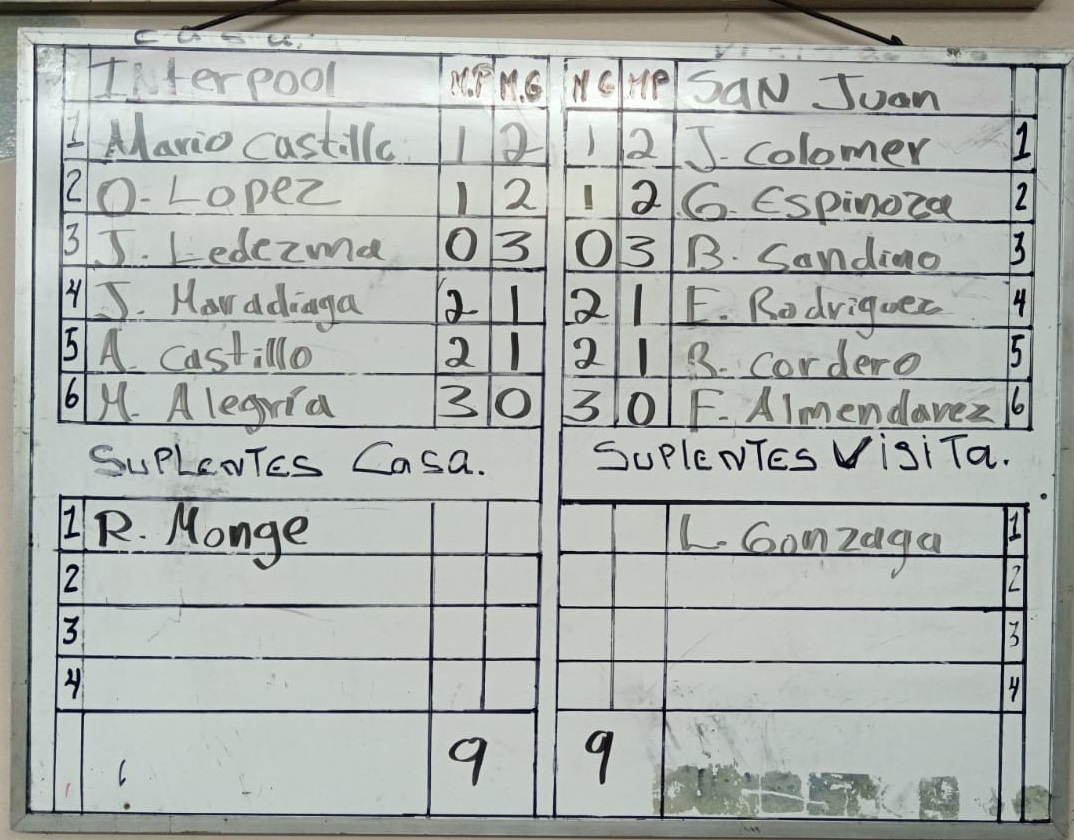 Casa.
Interpool M.P M.G M G MP SAN Juan
1 Mario castillo 1 2 1 2 J. colomer 1
2 O. Lopez 1 2 1 2 G. Espinoza 2
3 J. Ledezma 0 3 0 3 B. Sandino 3
4 J. Maradiaga 2 1 2 1 E. Rodriguez 4
5 A. castillo 2 1 2 1 R. cordero 5
6 M. Alegría 3 0 3 0 F. Almendarez 6
SUPLENTES Casa. SUPLENTES VisiTa.
1 R. Monge L. Gonzaga 1
2 2
3 3
4 4
9 9